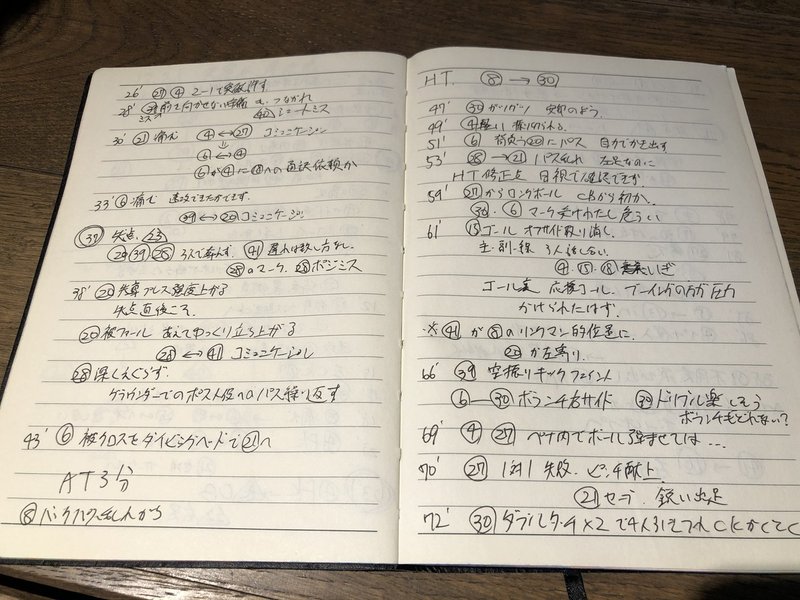 26' ㉗ ④ 2-1で突破許す。
28' ㊴前を向かせない守備 も つながれ
ミス シュートミス
30' ㉑ 痛む ④ ↔ ㉗ コミュニケーション
⇓
⑥ ↔ ④
⑥が④に への直訳依頼か
33' ⑥ 痛む
㊴ ↔ ⑳ コミュニケーション
㊲ 失点 ㉓
㊴ 3人で奪えず。 ㊶ 遅れは致し方なし。
㉘のマーク. ポジミス
38' 失点 プレス強度上がる
失点直後こそ。
⑳被ファール あえてゆっくり立ち上がる
㉘ ↔ ㊶ コミュニケーション
㉘深くえぐらず。
グラウンダーでのポスト役へのパス繰り返す
43' ⑥ 被クロスをダイビングヘッドで㉑へ
AT3分
⑧バックパス乱れから
H.T. ⑧ → ㉚
47' ㊴ガツガツ 突却のよう。
49' ④ 振り切られる。
51' ⑥ 背負う⑳にパス 自分でかき出す
53' ㉘ → ㉑ パス乱れ 左足なのに
HT修正点 目視で確認できず。
59' ㉗からロングボール CBから初か。
㊱. ⑥ マーク受けわたし危うい
61' ⑮ゴール オフサイド取り消し。
主・副・線 3人話し合い。
④ ⑮ ⑱
ゴール裏 応援コール。 ブーイングの方が圧力
かけられたはず。
※ ㊶が⑧のリンクマン的位置に。
⑳が左寄り。
66' ㊴ 空振りキックフェイント
⑥ー㉚ボランチ右サイド ㊴ドリブル楽しそう
ボランチもどれない?
69' ④ ㉗ ペナ内でボール弾ませては…
70' ㉗ 1対1 失敗、ピンチ献上。
㉑セーブ 鋭い出足
72' ㉚ ダブルタッチ×2 で4人引きつれCKかくとく